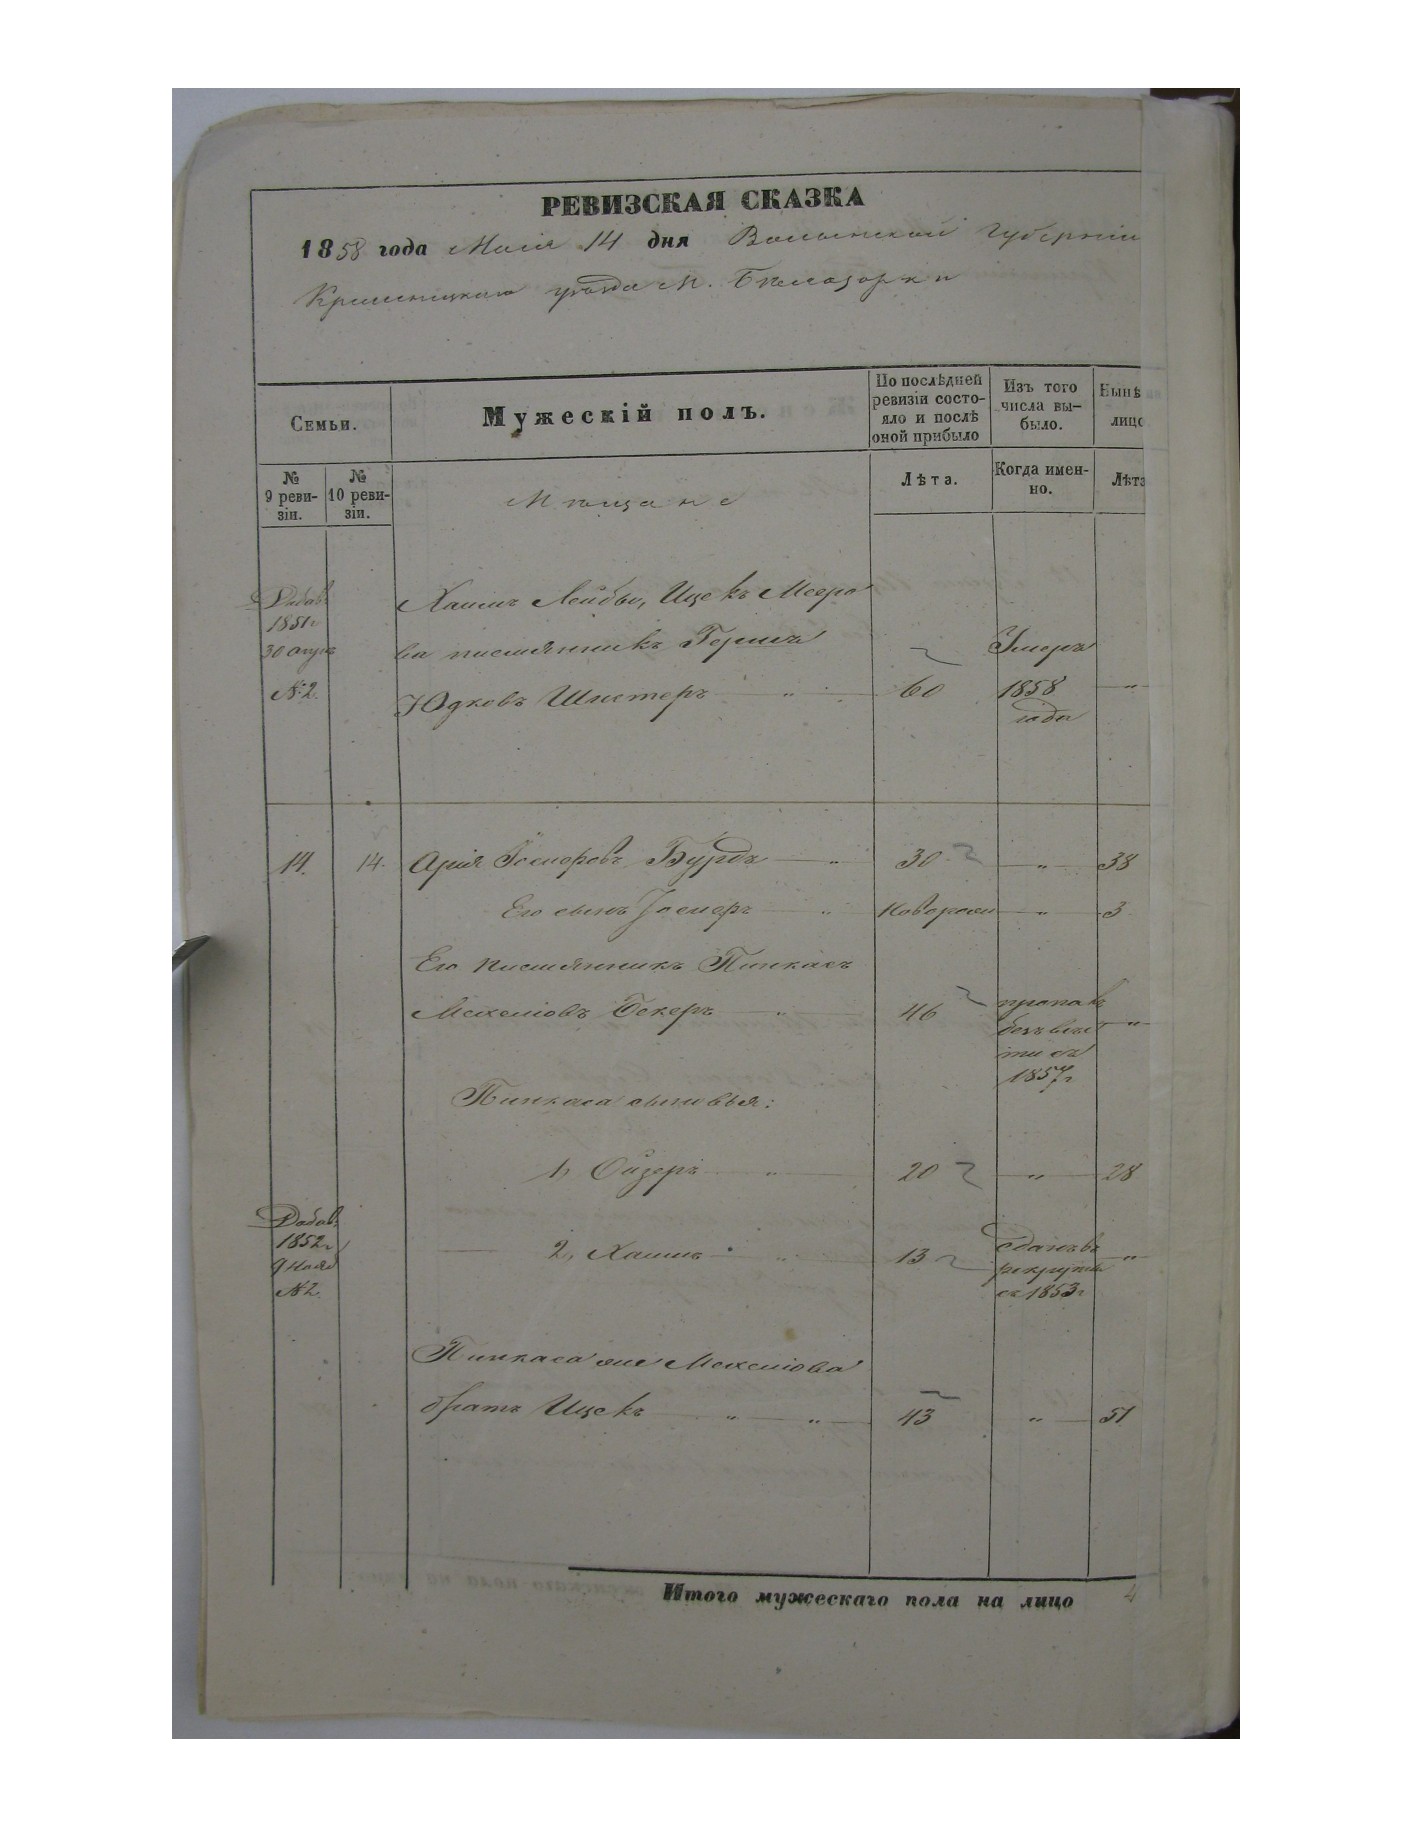 РЕВИЗСКАЯ СКАЗКА
1858 года Маія 14 дня Волынской Губерніи
Кременецкаго уѣзда М. Бѣлозорки
Семьи.
Мужескій полъ.
По послѣдней ревизіи состояло и послѣ оной прибыло
Изъ того числа выбыло.
Нынѣ лицо
№ 9 ревизіи.
№ 10 ревизіи.
Лѣта.
Когда именно.
Лѣта
Мѣщане
Добав. 1851 г. № 2.
Хаимъ Лейбы, Ицекъ Мееро
ва племянникъ Герша
Юдковъ Шистеръ " 60 Умеръ 1858 года "
14. 14. Арія Іосиоровъ Бурда " 30 " 38
Его сынъ Іосиоръ " Новорожд " 3
Его племянникъ Пинкасъ
Мехеліовъ Бекеръ " 46 пропалъ безъ вѣсти съ 1857 г "
Пинкаса сыновья:
1, Ойзеръ " 20 " 28
Добав. 1852 г. 9 Нояб № 2.
2, Хаимъ " 13 сданъ въ рекруты съ 1853 г "
Пинкаса же Мехеліова
братъ Ицекъ " " 43 " 51
Итого мужескаго пола на лицо 4